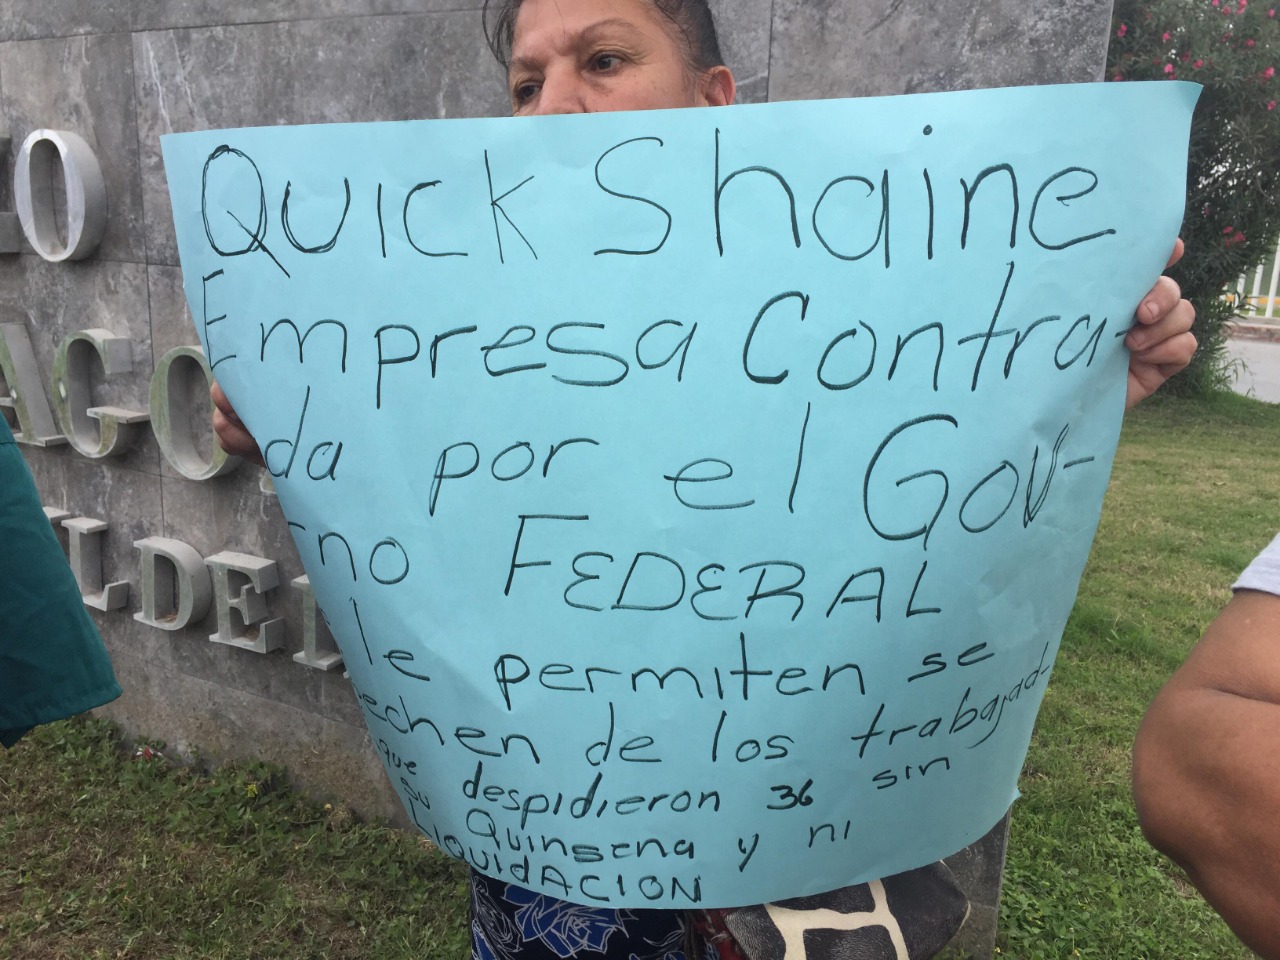 O
AGO
LDE
Quick Shaine
Empresa Contra-
da por el Gov-
rno FEDERAL
le permiten se
echen de los trabajad-
que despidieron 36 sin
su Quinsena y ni
LIQUIDACION